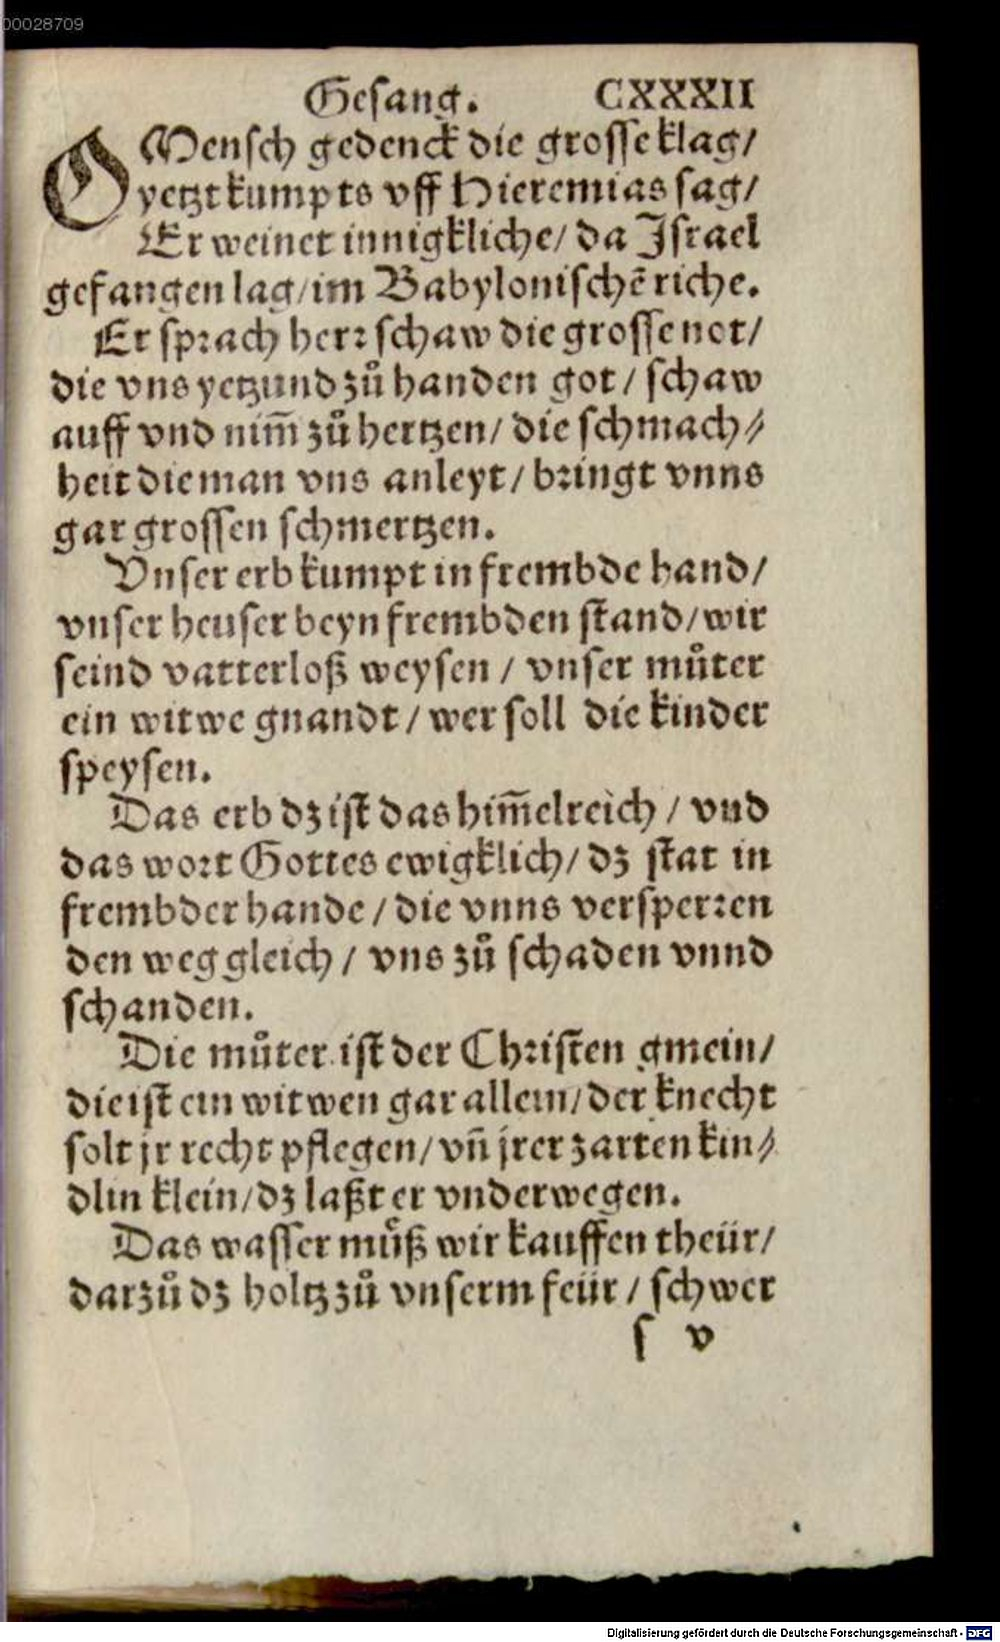 00028709
Gesang. CXXXII
O Mensch gedenck die grosse klag/
yetzt kumpts vff Hieremias sag/
Er weinet innigkliche/ da Israel
gefangen lag/ im Babylonischē riche.
Er sprach herr schaw die grosse not/
die vns yetzund zů handen got / schaw
auff vnd nim̄ zů hertzen/ die schmach⸗
heit die man vns anleyt / bringt vnns
gar grossen schmertzen.
Vnser erb kumpt in frembde hand/
vnser heuser beyn frembden stand/ wir
seind vatterloß weysen / vnser můter
ein witwe gnandt / wer soll die kinder
speysen.
Das erb dz ist das him̄elreich / vnd
das wort Gottes ewigklich/ dz stat in
frembder hande / die vnns versperren
den weg gleich / vns zů schaden vnnd
schanden.
Die můter ist der Christen gmein/
die ist ein witwen gar allein/ der knecht
solt jr recht pflegen/ vn̄ jrer zarten kin⸗
dlin klein/ dz laßt er vnderwegen.
Das wasser můß wir kauffen theür/
darzů dz holtz zů vnserm feür / schwer
s v
Digitalisierung gefördert durch die Deutsche Forschungsgemeinschaft - DFG